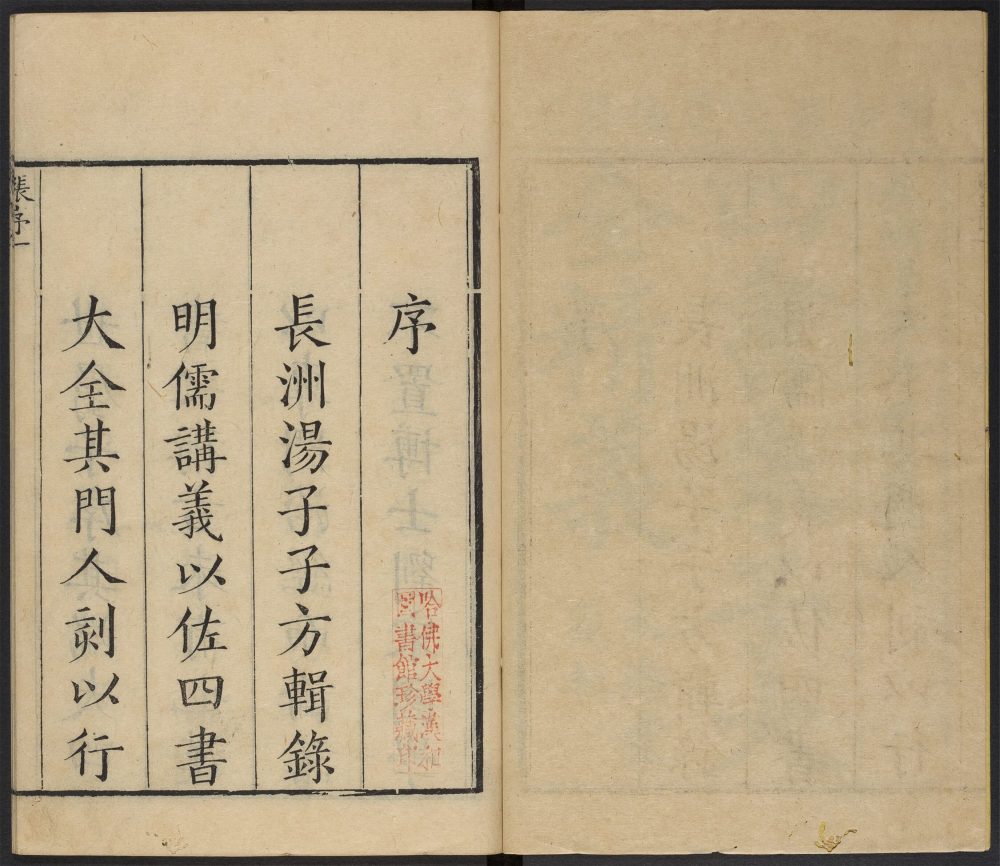 序
長洲湯子子方輯錄
明儒講義以佐四書
大全其門人刻以行
張序一
哈佛大學漢和
圖書館珍藏印